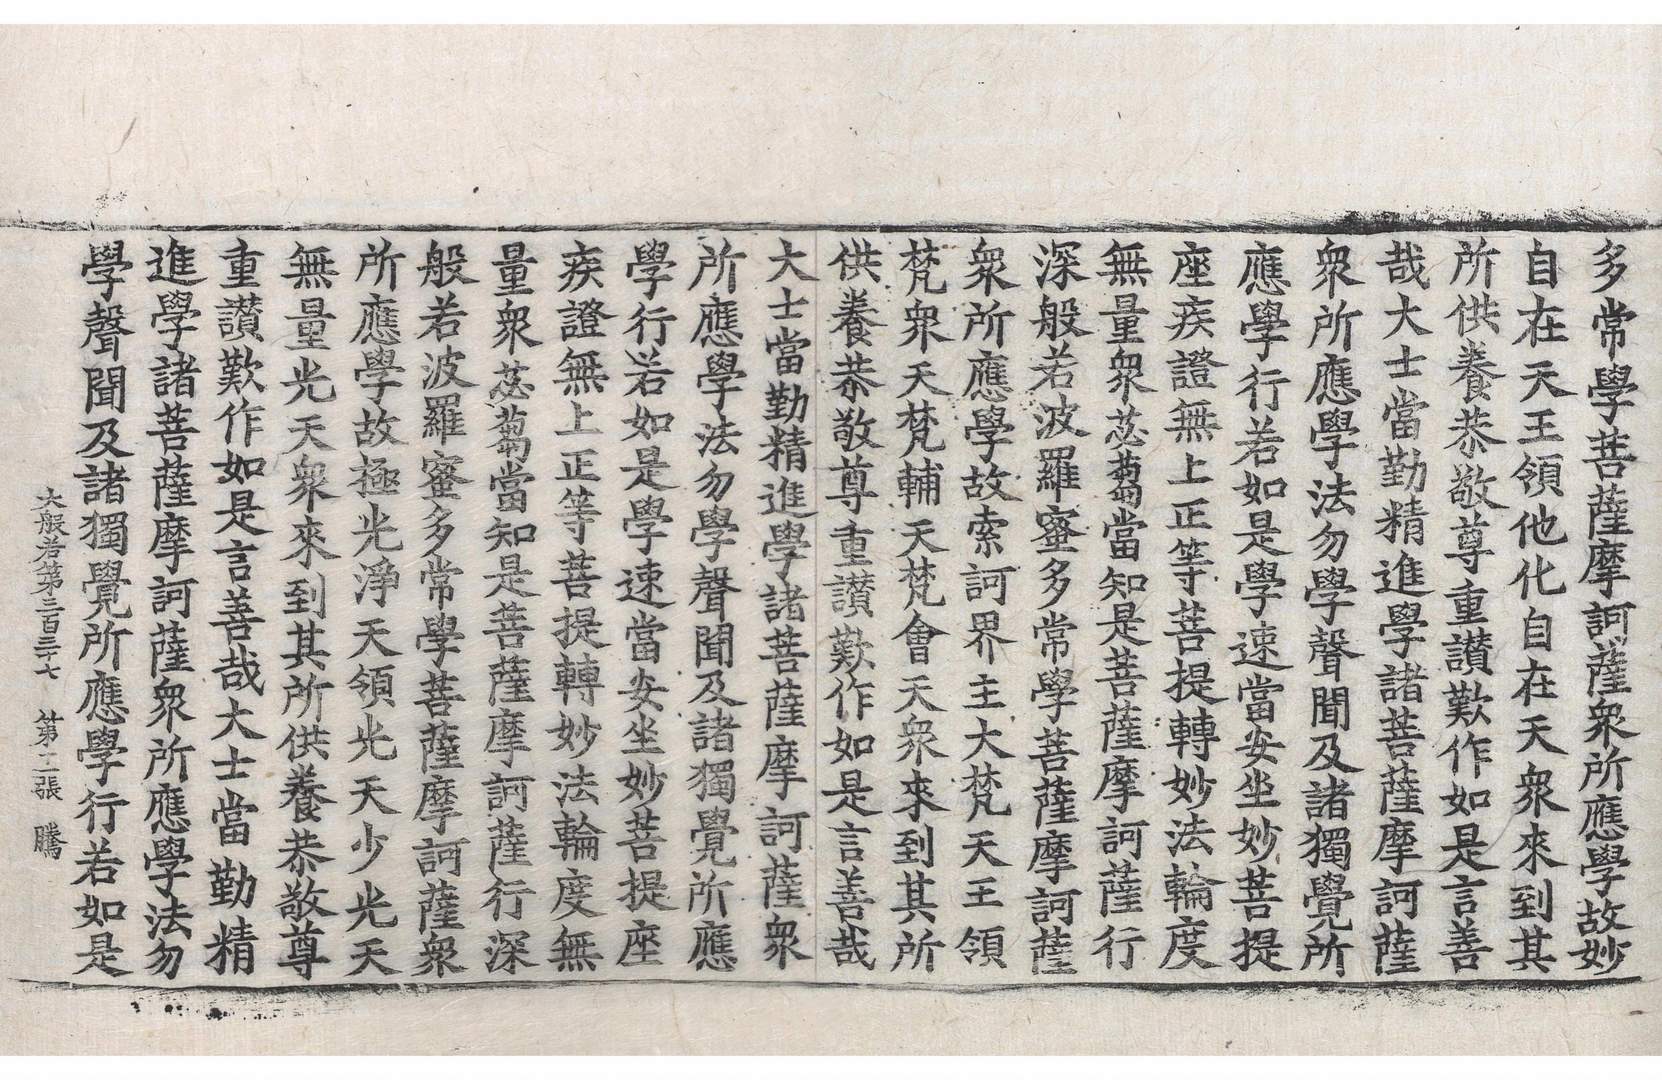 多常學菩薩摩訶薩衆所應學故妙
自在天王領他化自在天衆來到其
所供養恭敬尊重讃歎作如是言善
哉大士當勤精進學諸菩薩摩訶薩
衆所應學法勿學聲聞及諸獨覺所
應學行若如是學速當安坐妙菩提
座疾證無上正等菩提轉妙法輪度
無量衆苾蒭當知是菩薩摩訶薩行
深般若波羅蜜多常學菩薩摩訶薩
衆所應學故索訶界主大梵天王領
梵衆天梵輔天梵會天衆來到其所
供養恭敬尊重讃歎作如是言善哉
大士當勤精進學諸菩薩摩訶薩衆
所應學法勿學聲聞及諸獨覺所應
學行若如是學速當安坐妙菩提座
疾證無上正等菩提轉妙法輪度無
量衆苾蒭當知是菩薩摩訶薩行深
般若波羅蜜多常學菩薩摩訶薩衆
所應學故極光淨天領光天少光天
無量光天衆來到其所供養恭敬尊
重讃歎作如是言善哉大士當勤精
進學諸菩薩摩訶薩衆所應學法勿
學聲聞及諸獨覺所應學行若如是
大般若第三百三十七 第二張 騰